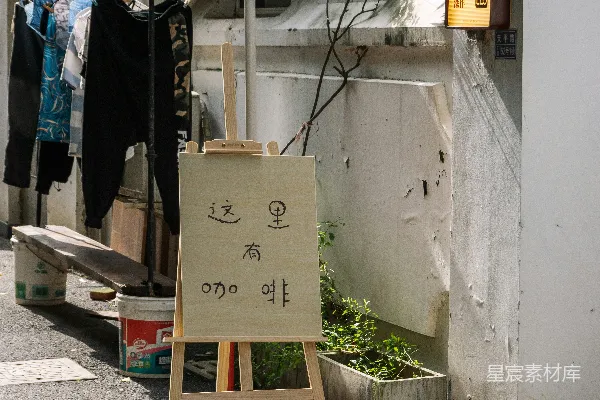 这里
有
咖啡
星宸素材库